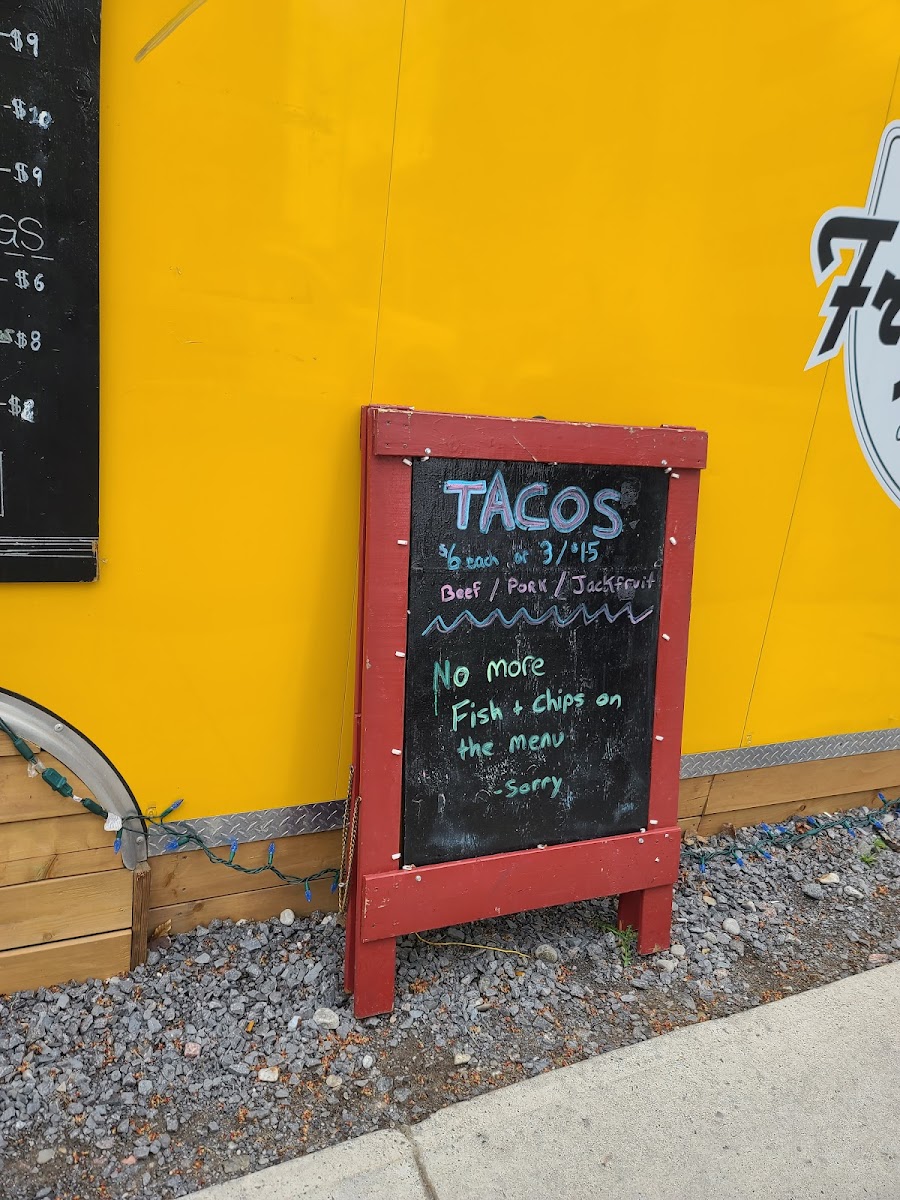 -$9
-$10
-$9
GS
-$6
$8
TACOS
$6 each or 3/$15
Beef / Pork / Jackfruit
No more
Fish + Chips on
the menu
-Sorry